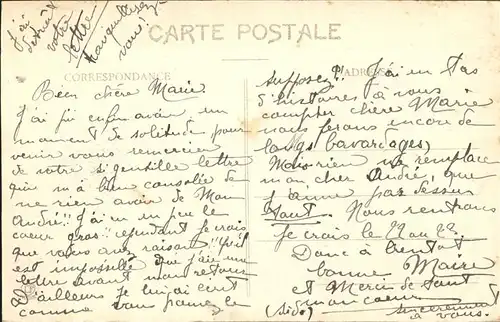 J'ai
détruit
votre
lettre
tranquillisez-
vous!
CARTE POSTALE
CORRESPONDANCE
ADRESSE
Bien chère Marie
J'ai pu enfin avoir un
moment de solitude pour
venir vous remercier
de votre si gentille lettre
qui m'a bien consolée de
ne rien avoir de Mon
André!! J'ai un peu le
coeur gros!! cependant je crois
que vous avez raison!! qu'il
est impossible que j'aie une
lettre avant mon retour
D'ailleurs je lui ai écrit
comme vous pouvez le
supposez!! J'ai un tas
d'histoires à vous
compter chère Marie
nous ferons encore de
longs bavardages)
Mais rien ne remplace
mon cher André, que
j'aime par dessus
tout. Nous rentrons
je crois le 22 ou 23.
Donc à bientôt
bonne Marie
et Merci de tout
mon coeur
sincèrement
à vous.